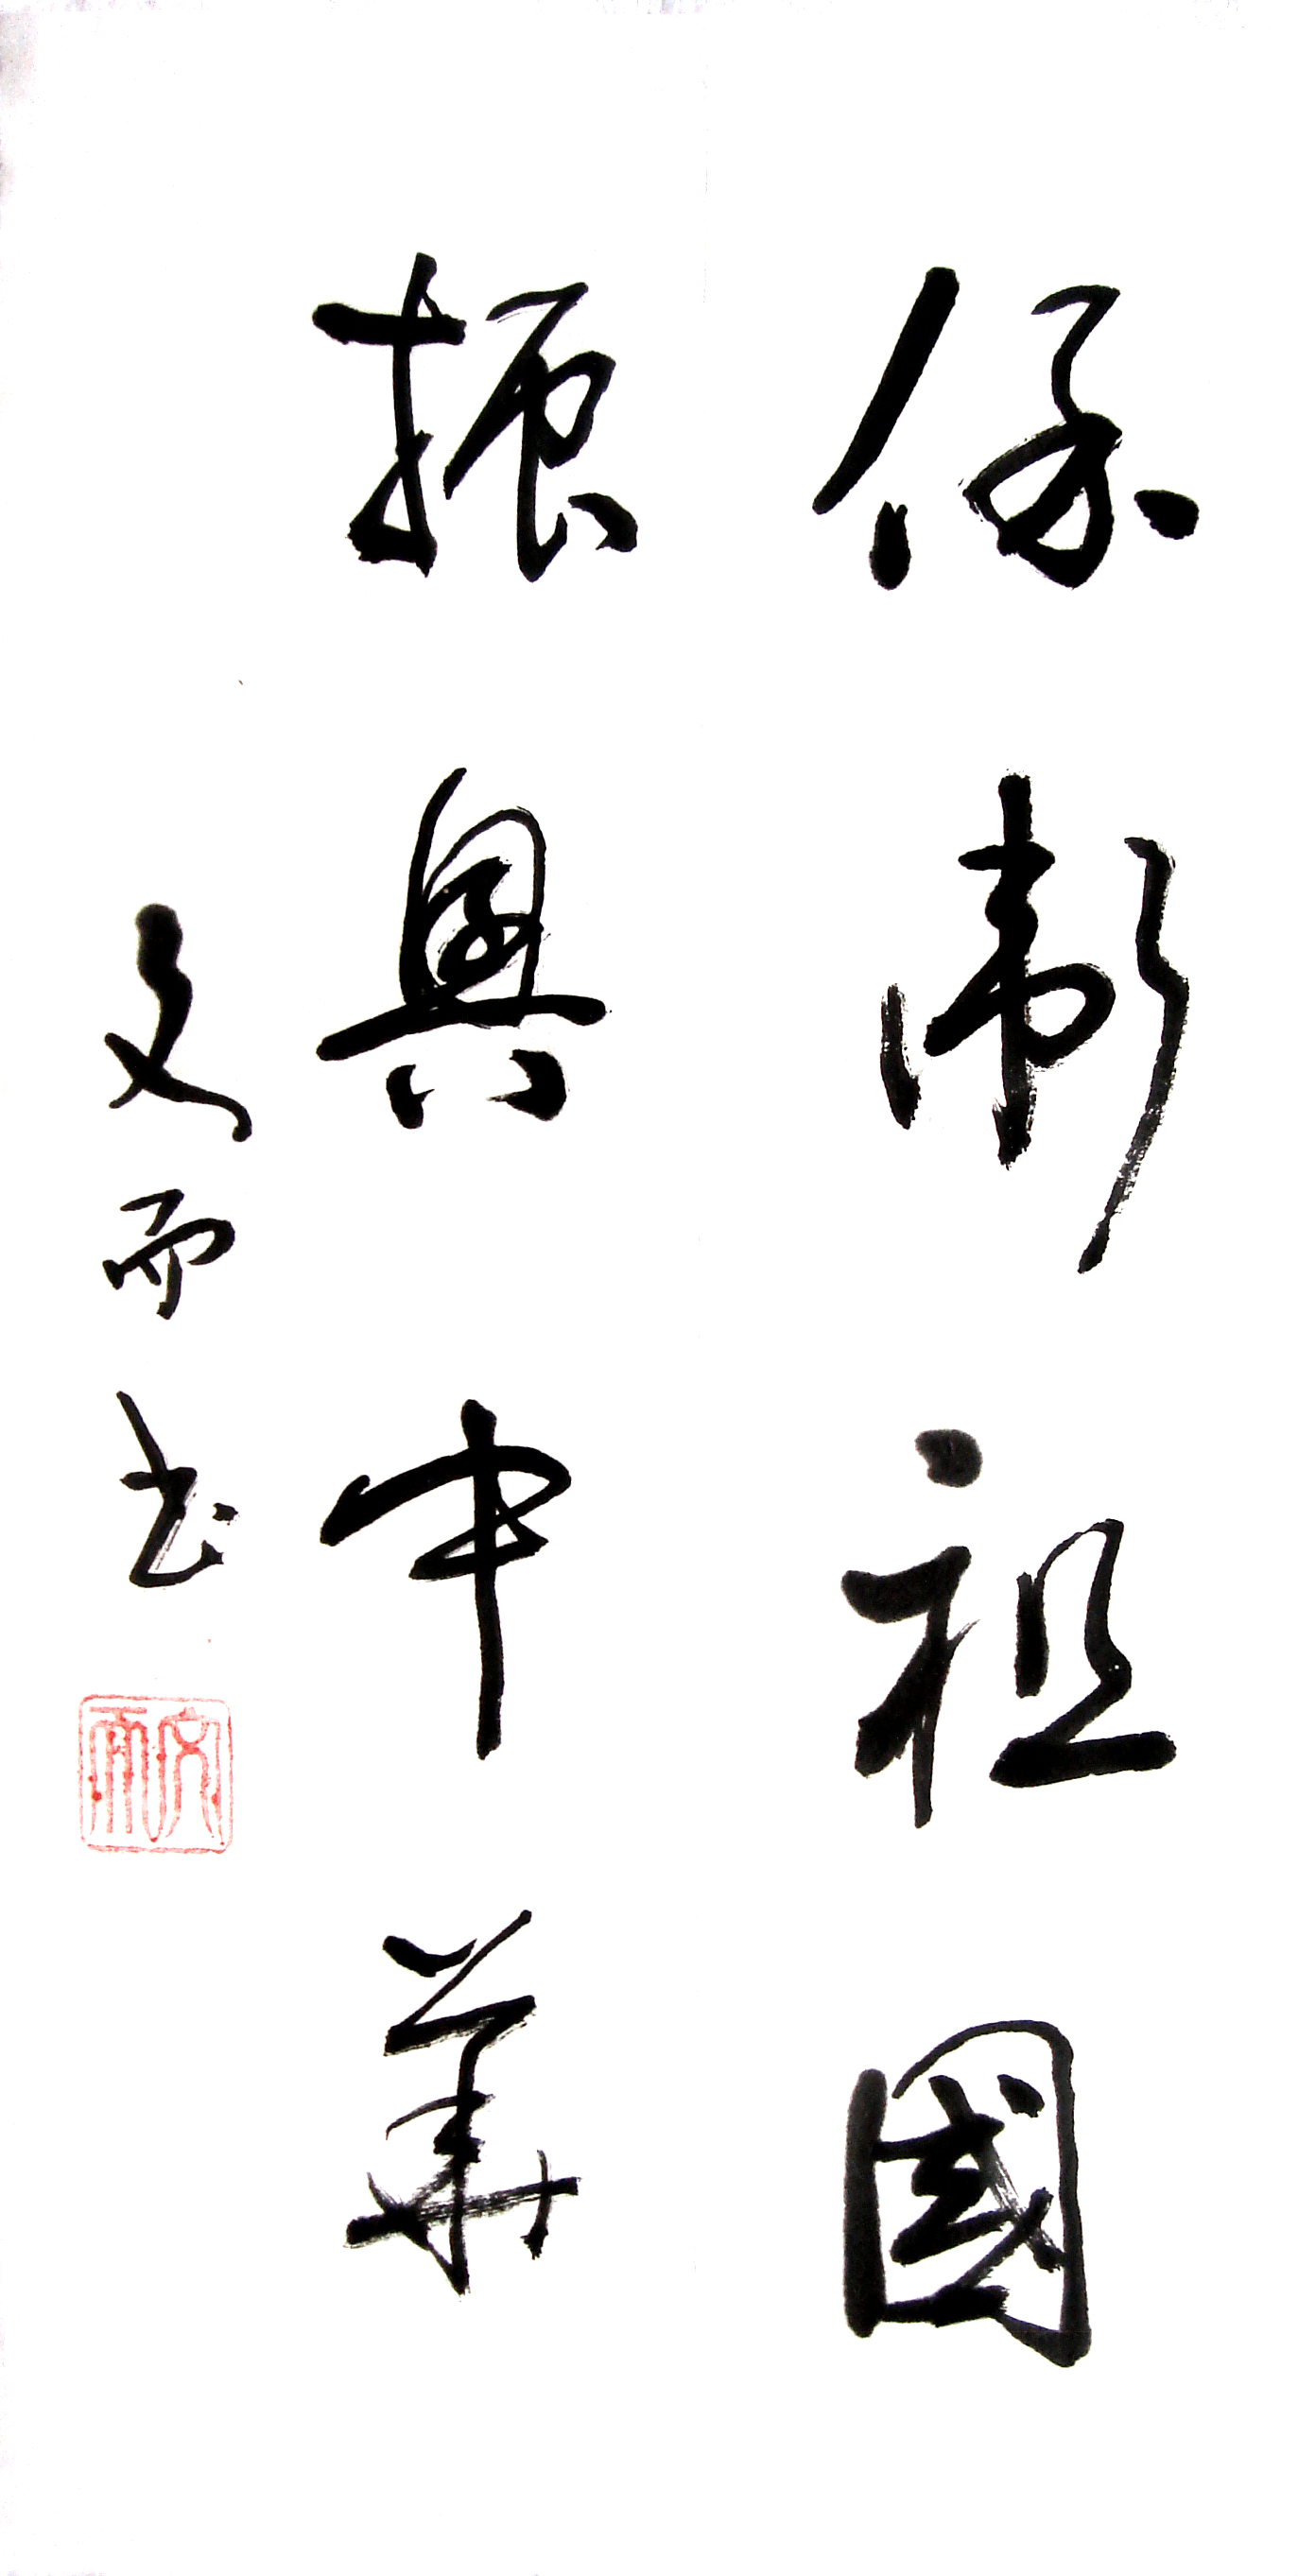 保衛祖國
振興中華
文而书
文而